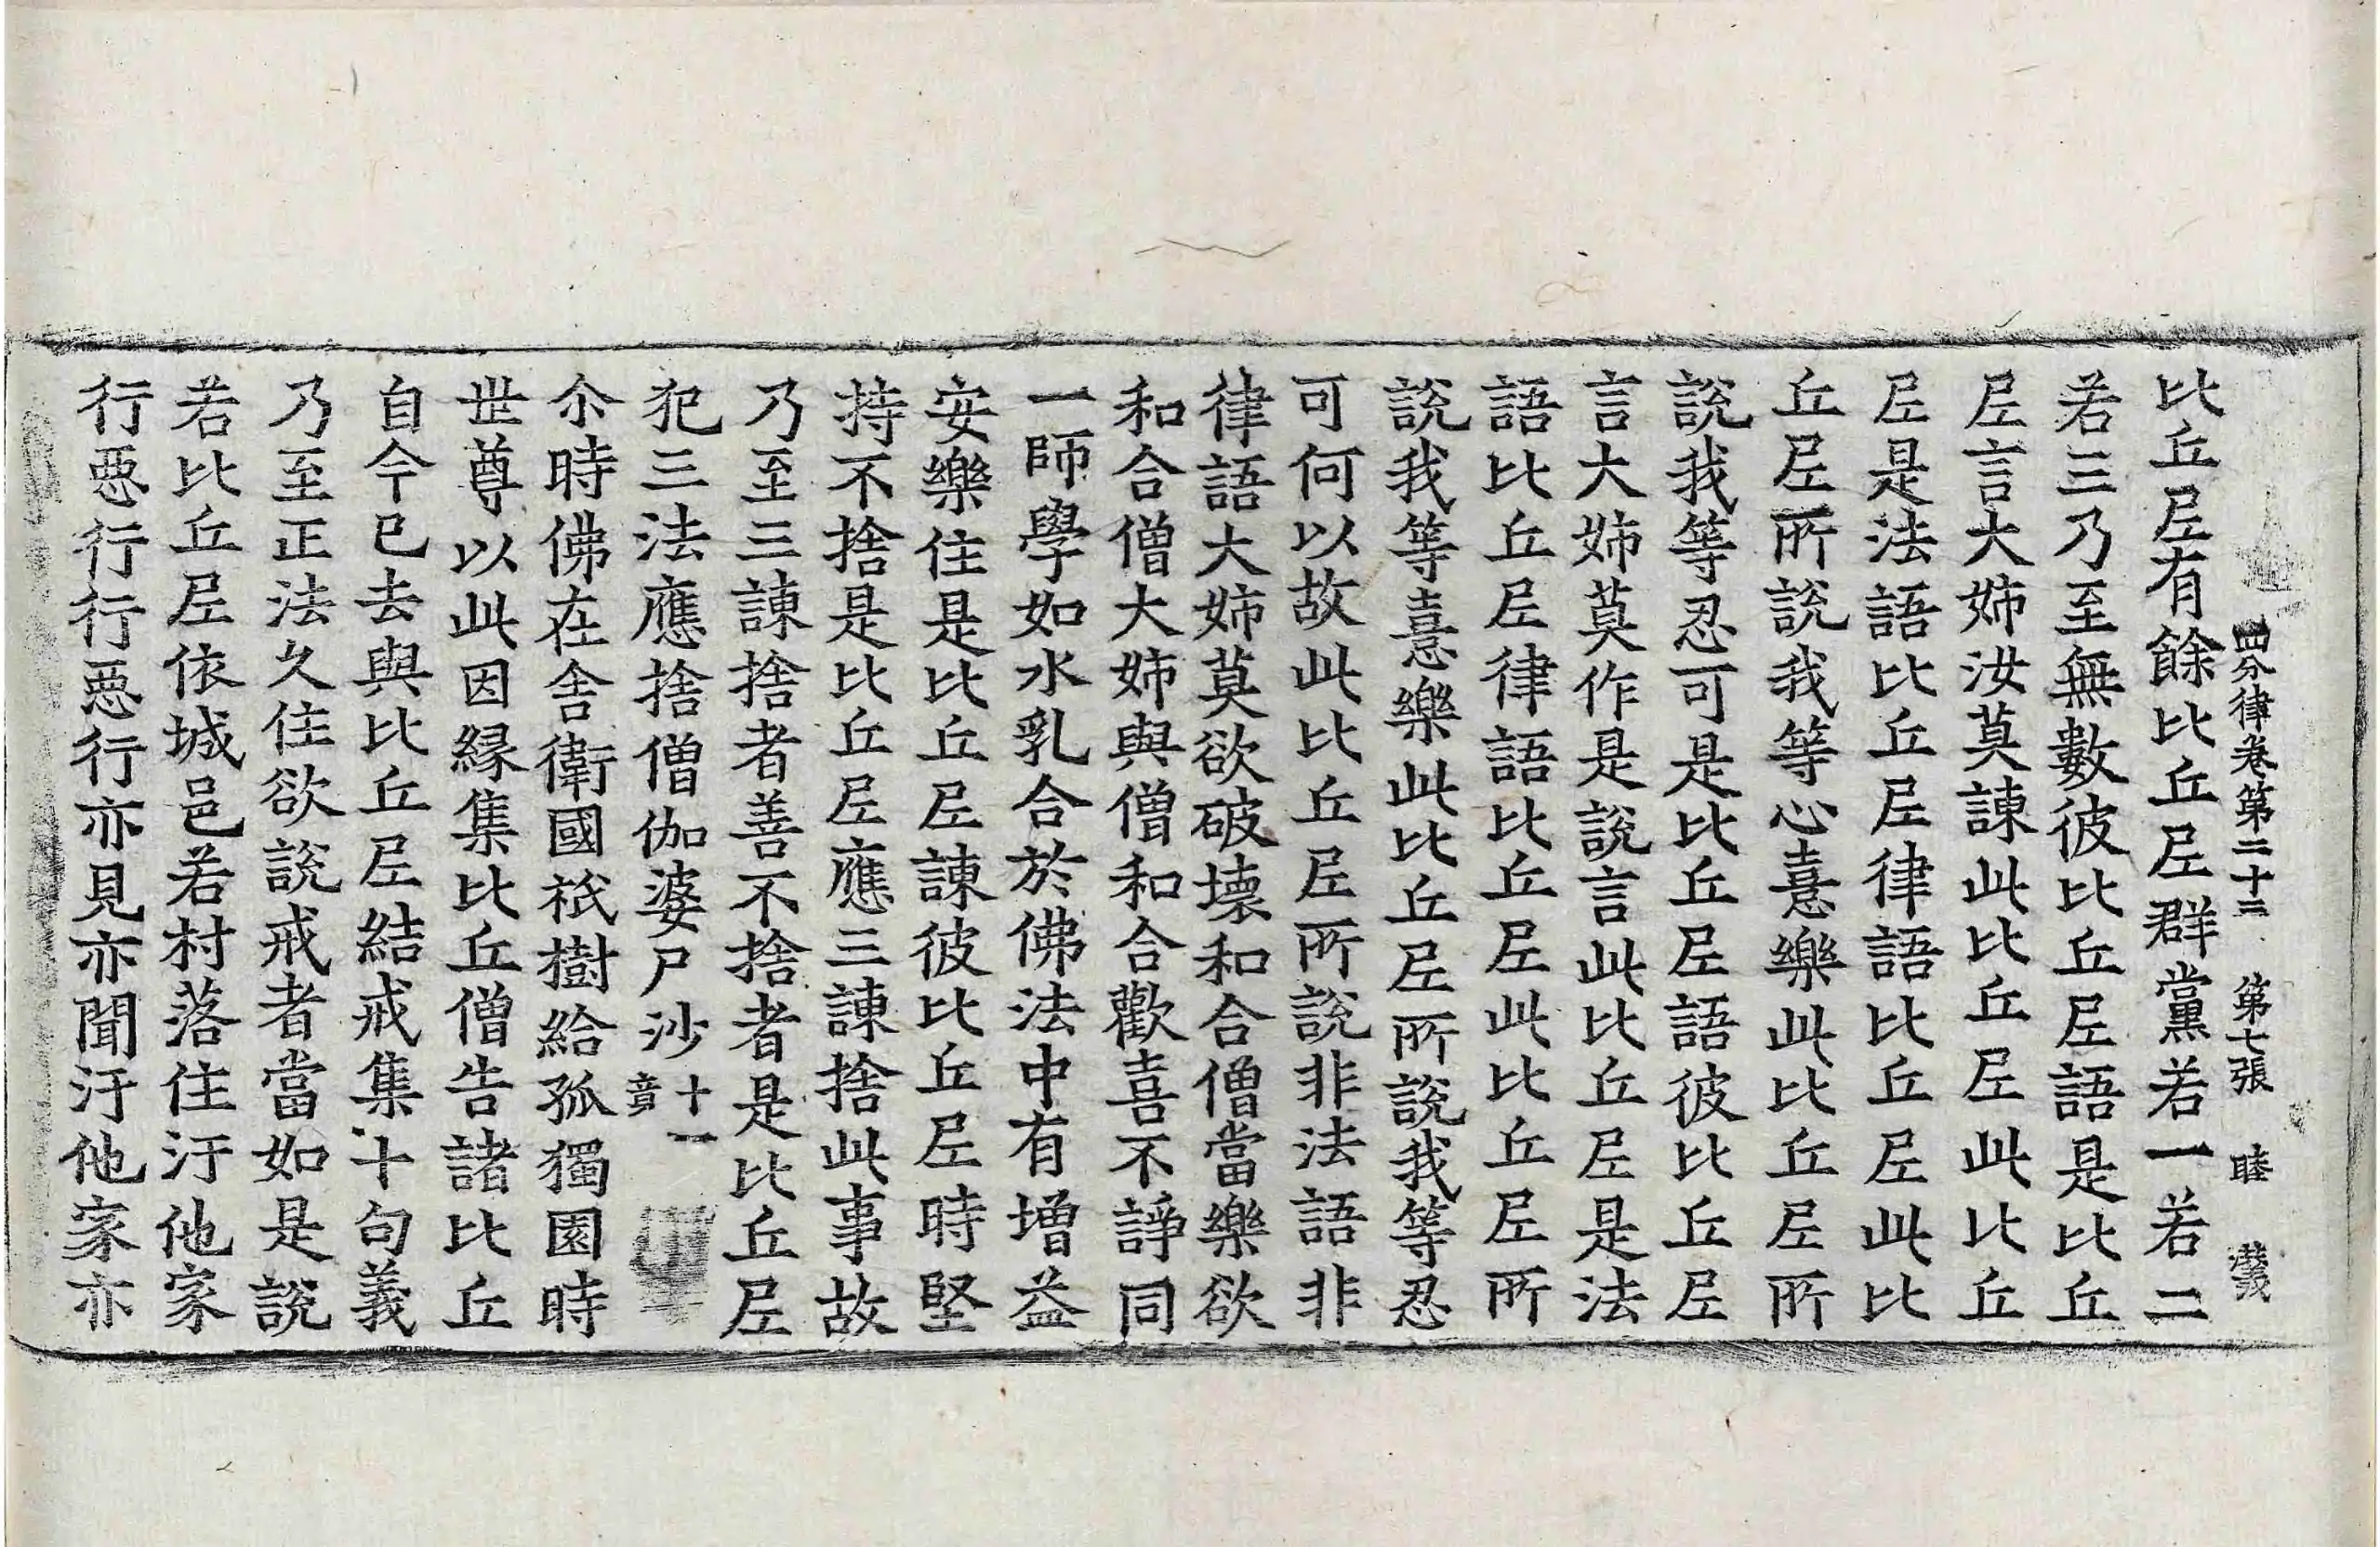 四分律卷第二十二 第七張 睦 義
比丘尼有餘比丘尼群黨若一若二
若三乃至無數彼比丘尼語是比丘
尼言大姊汝莫諫此比丘尼此比丘
尼是法語比丘尼律語比丘尼此比
丘尼所說我等心憙樂此比丘尼所
說我等忍可是比丘尼語彼比丘尼
言大姊莫作是說言此比丘尼是法
語比丘尼律語比丘尼此比丘尼所
說我等憙樂此比丘尼所說我等忍
可何以故此比丘尼所說非法語非
律語大姊莫欲破壞和合僧當樂欲
和合僧大姊與僧和合歡喜不諍同
一師學如水乳合於佛法中有增益
安樂住是比丘尼諫彼比丘尼時堅
持不捨是比丘尼應三諫捨此事故
乃至三諫捨者善不捨者是比丘尼
犯三法應捨僧伽婆尸沙十一竟
尒時佛在舍衛國祇樹給孤獨園時
世尊以此因緣集比丘僧告諸比丘
自今已去與比丘尼結戒集十句義
乃至正法久住欲說戒者當如是說
若比丘尼依城邑若村落住汙他家
行惡行行惡行亦見亦聞汙他家亦